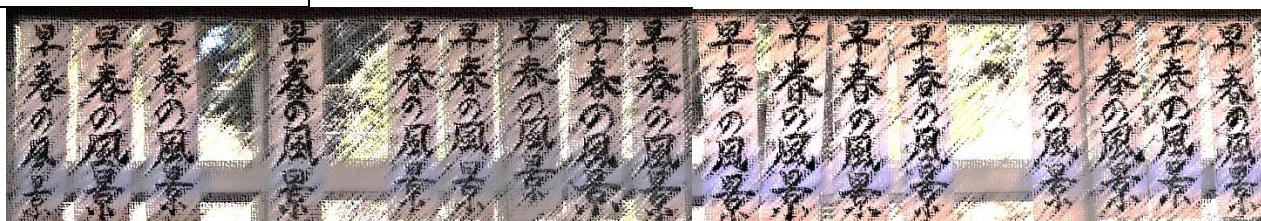 早春の風景
早春の風景
早春の風景
早春の風景
早春の風景
早春の風景
早春の風景
早春の風景
早春の風景
早春の風景
早春の風景
早春の風景
早春の風景
早春の風景
早春の風景
早春の風景
早春の風景